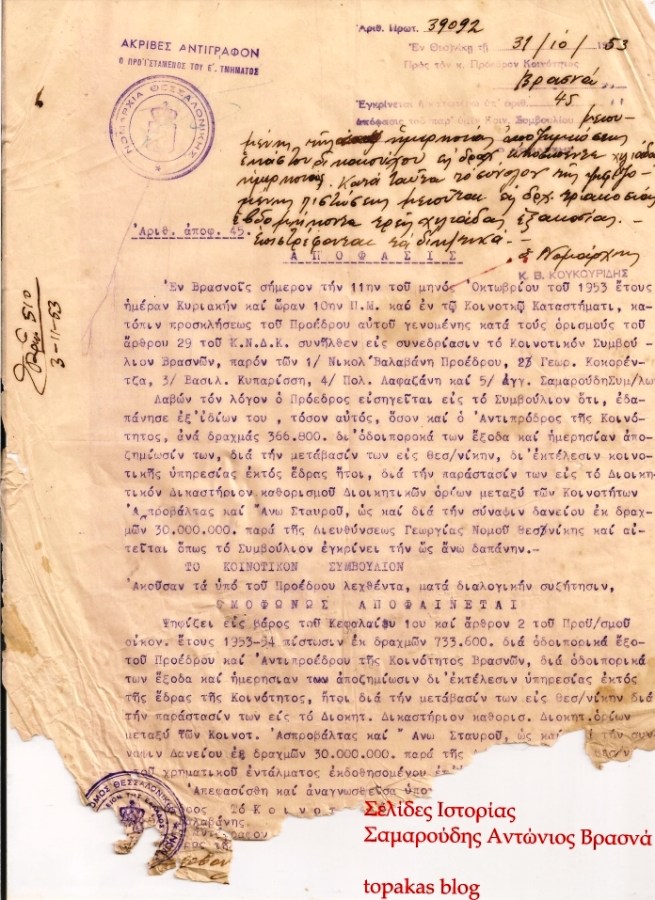 Ἀριθ. Πρωτ. 39092
ΑΚΡΙΒΕΣ ΑΝΤΙΓΡΑΦΟΝ
Ο ΠΡΟΪΣΤΑΜΕΝΟΣ ΤΟΥ Ε΄. ΤΜΗΜΑΤΟΣ
Ἐν Θεσ/νίκῃ τῇ 31/10/1953
Πρὸς τὸν κ. Πρόεδρον Κοινότητος
Βρασνά
ΝΟΜΑΡΧΙΑ ΘΕΣΣΑΛΟΝΙΚΗΣ
Ἐγκρίνεται ἀριθ. 45
Συμβουλίου μειου-
μένης τῆς ἡμερησίας ἀποζημιώσεως
ἑκάστου δικαιούχου εἰς δραχ. χιλιάδα
ἡμερησίως. Κατὰ ταῦτα τὸ σύνολον τῆς ψηφιζο-
μένης πιστώσεως μειοῦται εἰς δρχ. τριακοσίας
ἑβδομήκοντα τρεῖς χιλιάδας ἑξακοσίας.-
Ἀριθ. ἀποφ. 45.
Ἐπιστρέφονται τὰ -
Ὁ Νομάρχης
Α Π Ο Φ Α Σ Ι Σ
Κ. Β. ΚΟΥΚΟΥΡΙΔΗΣ
510
3-11-53
Ἐν Βρασνοῖς σήμερον τήν 11ην τοῦ μηνός Ὀκτωβρίου τοῦ 1953 ἔτους
ἡμέραν Κυριακήν καί ὥραν 10ην Π.Μ. καί ἐν τῷ Κοινοτικῷ Καταστήματι, κα-
τόπιν προσκλήσεως τοῦ Προέδρου αὐτοῦ γενομένης κατά τούς ὁρισμούς τοῦ
ἄρθρου 29 τοῦ Κ.Ν.Δ.Κ. συνῆλθεν εἰς συνεδρίασιν τό Κοινοτικόν Συμβού
λιον Βρασνῶν, παρόν των 1/ Νικολ Βαλαβάνη Προέδρου, 2/ Γεωρ. Κοκορέν-
τζα, 3/ Βασιλ. Κυπαρίσση, 4/ Πολ. Λαφαζάνη καί 5/ ἀγγ. ΣαμαρούδηΣυμ/λων
Λαβών τόν λόγον ὁ Πρόεδρος εἰσηγεῖται εἰς τό Συμβούλιον ὅτι, ἐδα-
πάνησε ἐξ ἰδίων του , τόσον αὐτός, ὅσον καί ὁ Ἀντιπρόδρος τῆς Κοινό-
τητος, ἀνά δραχμάς 366.800. δι ὁδοιπορικά των ἔξοδα καί ἡμερησίαν ἀπο-
ζημίωσίν των, διά τήν μετάβασίν των εἰς Θεσ/νίκην, δι ἐκτέλεσιν κοινο-
τικῆς ὑπηρεσίας ἐκτός ἕδρας ἤτοι, διά τήν παράστασίν των εἰς τό Διοικη-
τικόν Δικαστήριον καθορισμοῦ Διοικητικῶν ὁρίων μεταξύ τῶν Κοινοτήτων
Ἀσπροβάλτας καί Ἄνω Σταυροῦ, ὡς καί διά τήν σύναψιν δανείου ἐκ δραχ-
μῶν 30.000.000. παρά τῆς Διευθύνσεως Γεωργίας Νομοῦ Θεσ/νίκης καί αἰ-
τεῖται ὅπως τό Συμβούλιον ἐγκρίνει τήν ὡς ἄνω δαπάνην.-
ΤΟ ΚΟΙΝΟΤΙΚΟΝ ΣΥΜΒΟΥΛΙΟΝ
Ἀκοῦσαν τά ὑπό τοῦ Προέδρου λεχθέντα, ματά διαλογικήν συζήτησιν,
Ο Μ Ο Φ Ω Ν Ω Σ Α Π Ο Φ Α Ι Ν Ε Τ Α Ι
Ψηφίζει εἰς βάρος τοῦ Κεφαλαίου 1ου καί ἄρθρον 2 τοῦ Προϋ/σμοῦ
οἰκον. ἔτους 1953-94 πίστωσιν ἐκ δραχμῶν 733.600. διά ὁδοιπορικά ἔξο-
τοῦ Προέδρου καί Ἀντιπροέδρου τῆς Κοινότητος Βρασνῶν, διά ὁδοιπορικά
των ἔξοδα καί ἡμερησίαν των ἀποζημίωσιν δι ἐκτέλεσιν ὑπηρεσίας ἐκτός
τῆς ἕδρας τῆς Κοινότητος, ἤτοι διά τήν μετάβασίν των εἰς Θεσ/νίκην διά
τήν παράστασίν των εἰς τό Διοικητ. Δικαστήριον καθορισ. Διοικητ.ὁρίων
μεταξύ τῶν Κοινοτ. Ἀσπροβάλτας καί Ἄνω Σταυροῦ, ὡς κα τήν σύν
ναψιν Δανείου ἐξ δραχμῶν 30.000.000. παρά τῆς
τοῦ χρηματικοῦ ἐντάλματος ἐκδοθησομένου ἐπ
Ἀπεφασίσθη καί ἀναγνωσθεῖσα ὑπο
Τό Κ ο ι ν ο τ
Βαλαβάνης.
Σελίδες Ιστορίας
Σαμαρούδης Αντώνιος Βρασνά
topakas blog